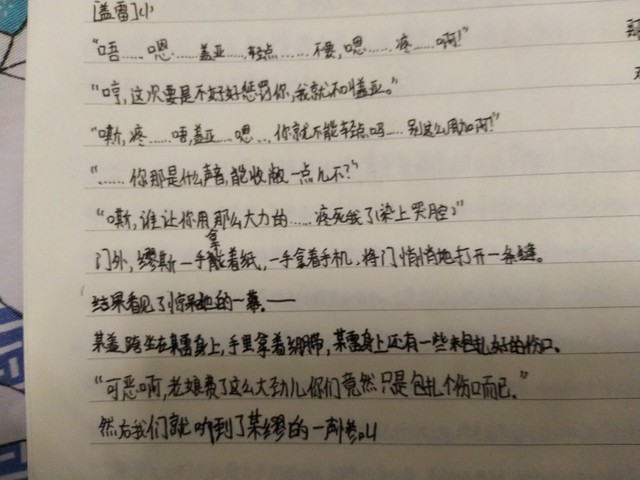 [盖雷]小
“唔……嗯……盖亚……轻点……不要,嗯……疼……啊!”
“哼,这次要是不好好惩罚你,我就不叫盖亚。”
“嘶,疼……唔,盖亚…嗯…,你就不能轻点吗……别这么用力啊!”
“……你那是什么声音,能收敛一点儿不?”
“嘶,谁让你用那么大力的……疼死我了(染上哭腔)”
门外,缪斯一手拿着纸,一手拿着手机,将门悄悄地打开一条缝。
结果看见了惊呆她的一幕。——
某盖跨坐在某雷身上,手里拿着绷带,某雷身上还有一些未包扎好的伤口。
“可恶啊,老娘费了这么大劲儿,你们竟然只是包扎个伤口而已。”
然后我们就听到了某缪的一声惨叫